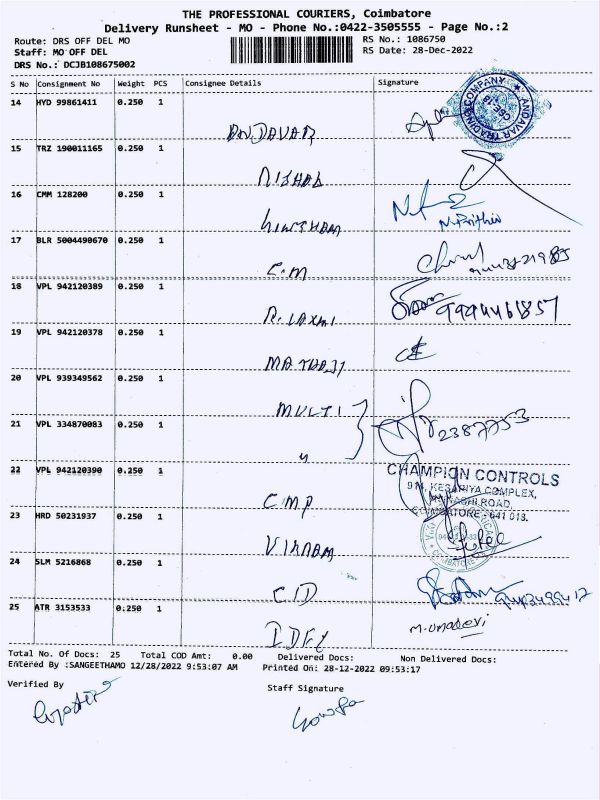 THE PROFESSIONAL COURIERS, Coimbatore
Delivery Runsheet - MO - Phone No.:0422-3505555 - Page No.:2
Route: DRS OFF DEL MO RS No.: 1086750
Staff: MO OFF DEL RS Date: 28-Dec-2022
DRS No.: DCJB108675002
S No Consignment No Weight PCS Consignee Details Signature
14 HYD 99861411 0.250 1
ANDAVAR TRADING COMPANY
15 TRZ 190011165 0.250 1
NISHAL
16 CMM 128200 0.250 1
N.Prithiv
17 BLR 5004490670 0.250 1
C.M
18 VPL 942120389 0.250 1
R. LAXMI 9994461857
19 VPL 942120378 0.250 1
MATHAJI
20 VPL 939349562 0.250 1
MULTI
21 VPL 334870083 0.250 1
2387753
22 VPL 942120390 0.250 1
CHAMPION CONTROLS
KESARIYA COMPLEX,
ROAD,
COIMBATORE - 641 018.
C.M.P
23 HRD 50231937 0.250 1
VIKRAM
24 SLM 5216868 0.250 1
CID
25 ATR 3153533 0.250 1
M.Umadevi
IDFC
Total No. Of Docs: 25 Total COD Amt: 0.00 Delivered Docs: Non Delivered Docs:
Entered By :SANGEETHAMO 12/28/2022 9:53:07 AM Printed On: 28-12-2022 09:53:17
Verified By Staff Signature